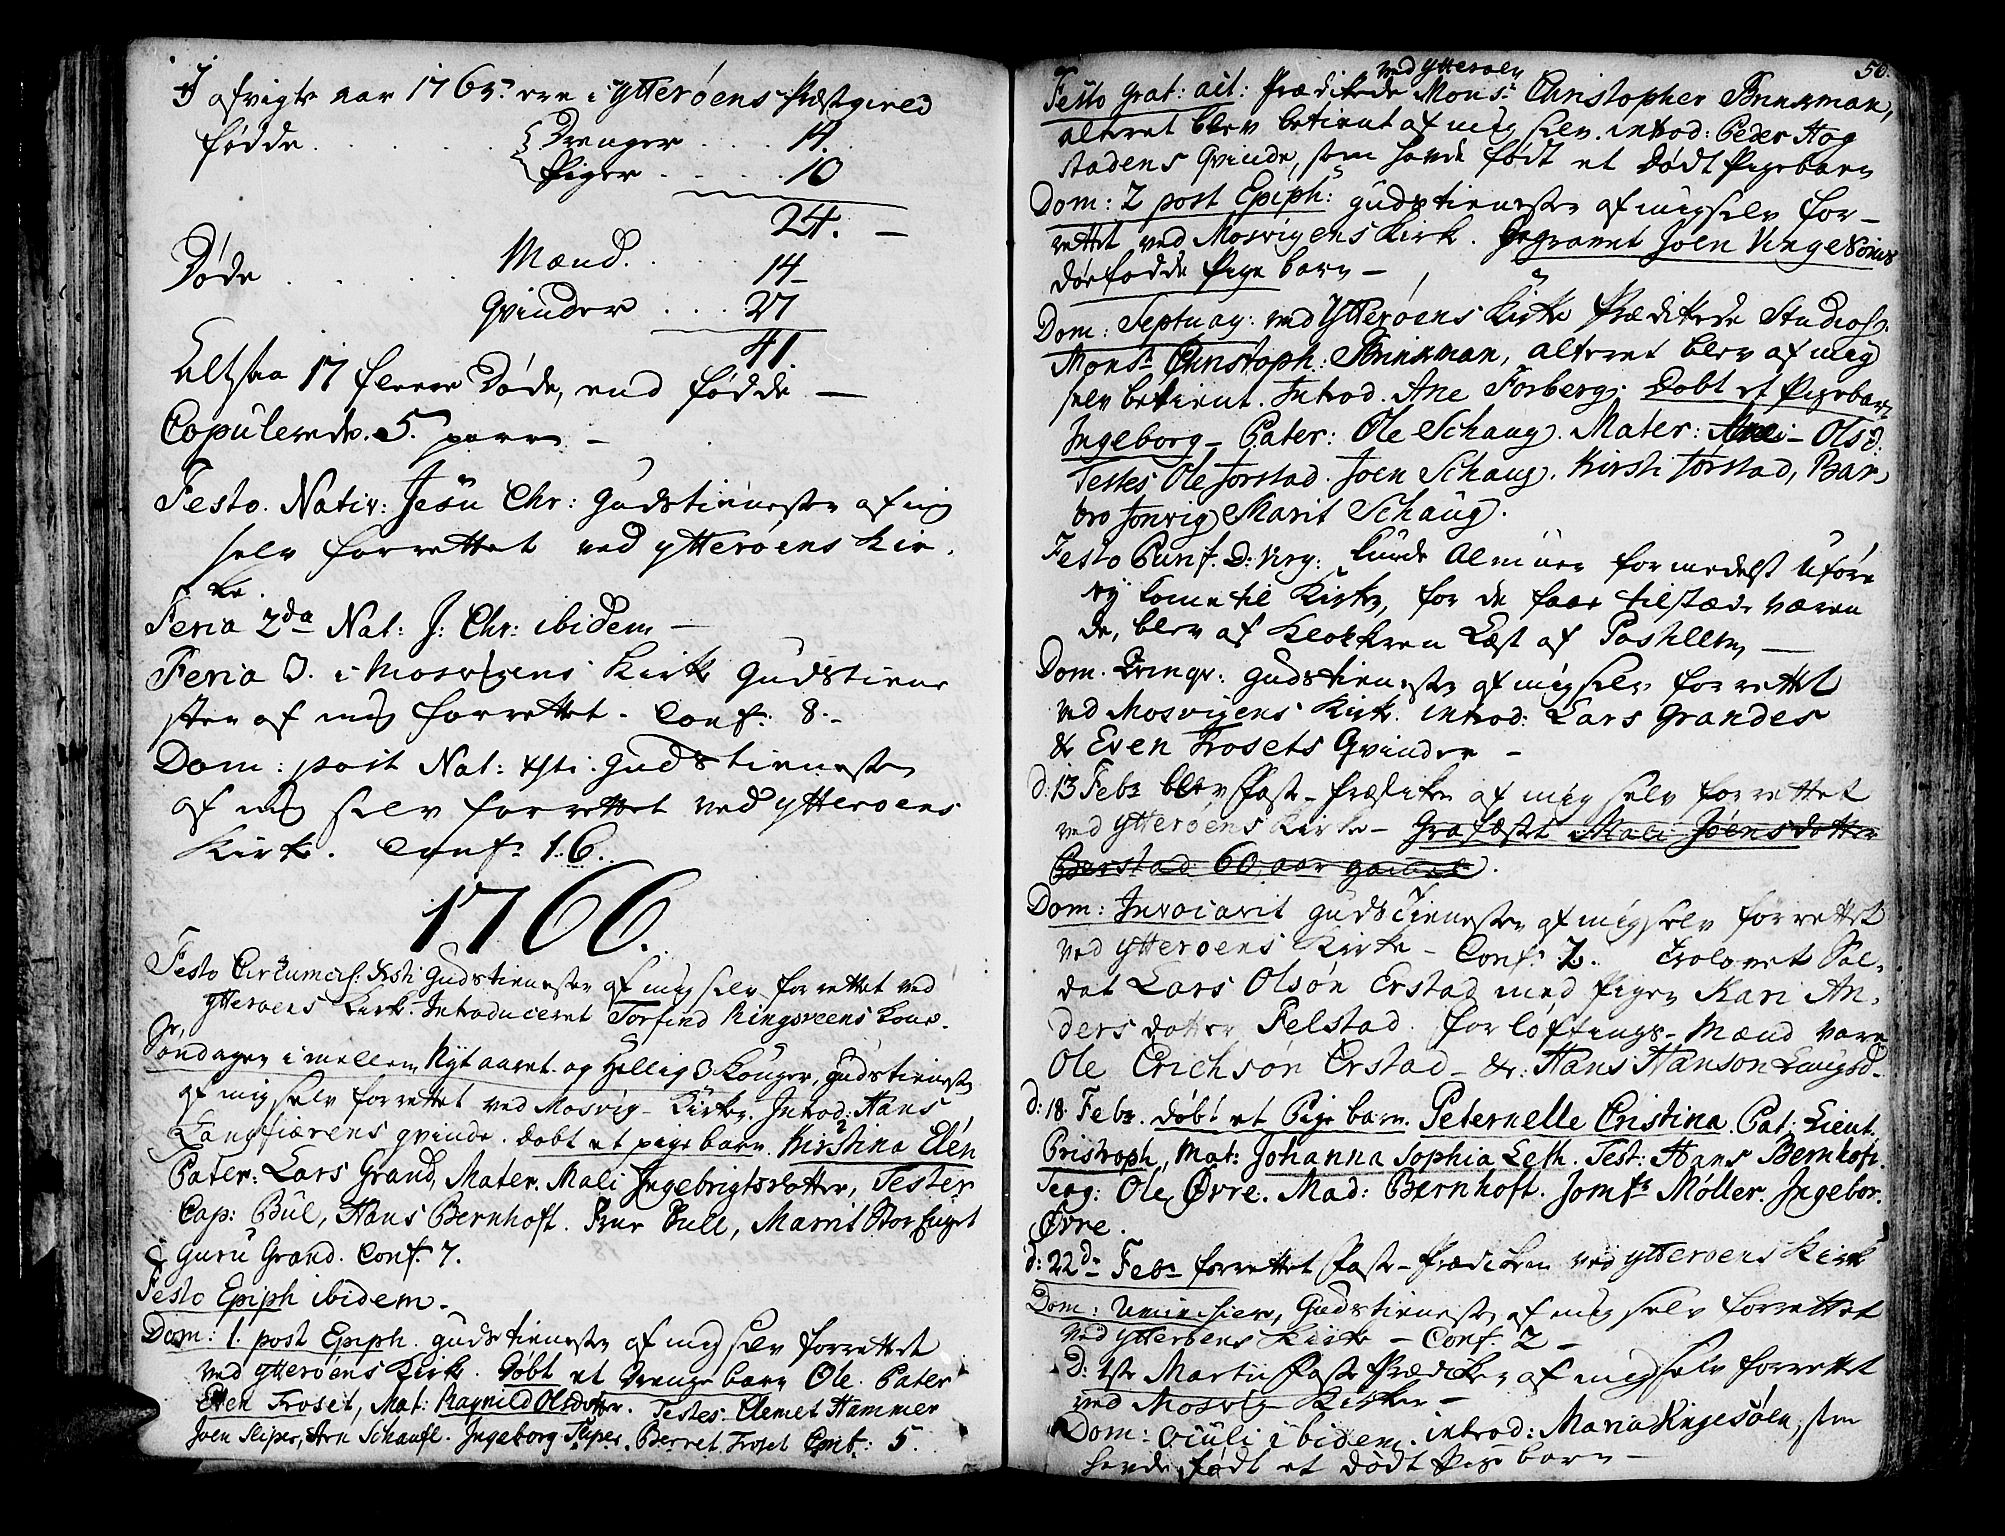 I afvigte aar 1765 ere i Ytterøens Præstegield
fødde . . . . . Drenger . . . . 14.
Piger . . . . . 10
24. —
Døde . . . . . Mænd. . . . 14 –
Qvinder . . . 27
41
Altsaa 17 fleere Døde, end fødde —
Copulerede. 5. parr –
Festo. Nativ: Jesu Chr: Gudstienesten af mig
selv forrettet ved Ytterøens Kir-
ke.
Feria 2da Nat: J: Chr: ibidem —
Feria 3. i Mosvigens Kirke Gudstiene
sten af mig forrettet. Conf: 8. –
Dom: post Nat: Xsti: Gudstienesten
af mig selv forrettet ved Ytterøens
Kirke. Conf: 16.
1766.
Festo Circumcis: Xsti Gudstienesten af mig selv forrettet ved
Ytterøens Kirke. Introduceret Torfind Ringsveens Kone.
Søndagen imellem Nytaaret og Hellig 3 Konger, Gudstienesten
af mig selv forrettet ved Mosvig-Kirke. Introd: Hans
Langfiærens qvinde. døbt et pige barn Kirstina Elen
Pater: Lars Grand, Mater. Mali Ingebrigtsdotter, Testes
Cap: Bul, Hans Bernhoft. Frue Bull, Marrit
& Guru Grand. Conf. 7.
Festo Epiph ibidem –
Dom: 1. post Epiph. Gudstienesten af mig selv forrettet
ved Ytterøens Kirke. Døbt et Drenge barn Ole. Pater
Even Troset, Mat: Ragnild Olsdotter. Testes. Clemet Hammer
Joen Sliper, Arn Schaufl. Ingeborg Sliper. Berret Troset Conf: 5.
50.
Festo grat: act: Prædikede ved Ytterøen Monsr Christopher Brinkman,
alteret blev betient af mig selv. introd: Peder Hog
stadens Qvinde, som havde født et dødt Pigebarn
Dom: 2 post Epiph: Gudstienesten af mig selv for-
rettet ved Mosvigens Kirk. Begravet Joen Vinge
dødfødde Pige barn –
Dom: Septuag: ved Ytterøens Kirke Prædikede Studios:
Monsr Christoph: Brinkman, alteret blev af mig
selv betient. Introd. Ane Forberg. Døbt et Pigebarn
Ingeborg – Pater: Ole Schaug. Mater: – Olsd:
Testes Ole Jørstad. Joen Schaug. Kirsti Jørstad, Bar
bro Jonvig Marit Schaug.
Festo Purif. D: Virg: kunde Almuen formedelst Uføre
ey kome til Kirke, for de faae tilstæde væren
de, blev af Klokkeren Læst af Postillen —
Dom. Qvinqv: Gudstienesten af mig selv forrettet
ved Mosvigens Kirke. introd: Lars Grandes
& Even Trosets Qvinder –
d: 13 Febr blev Faste-Prædiken af mig selv forrettet
ved Ytterøens Kirke – Grafæstet Mali Joensdotter
Barstad 60 aar gammel.
Dom: Invocavit Gudstienesten af mig selv forrettet
ved Ytterøens Kirke – Conf: 2. Trolovet Sol-
dat Lars Olsøn Erstad med Pigen Kari An-
dersdotter Felstad. forløftings-Mænd vare
Ole Erichsøn Erstad – &: Hans Hanson
d: 18. Febr. døbt et Pige barn. Peternelle Cristina. Pat: Lieut.
Pristroph, Mat: Johanna Sophia Leth. Test: Hans Bernhoft.
Serg: Ole Øvre. Mad: Bernhoft. Jomfr Møller. Ingebor.
Øvre.
d: 22de Febr forrettet Faste-Prædiken ved Ytterøens Kirke
Dom: Reminiscere, Gudstienesten af mig selv forrettet
ved Ytterøens Kirke – Conf. 2 –
D: 1ste Martii Faste Prædiken af mig selv forrettet
ved Mosvig Kirke –
Dom: Oculi ibidem. introd: Maria, som
havde født et dødt Pige barn –